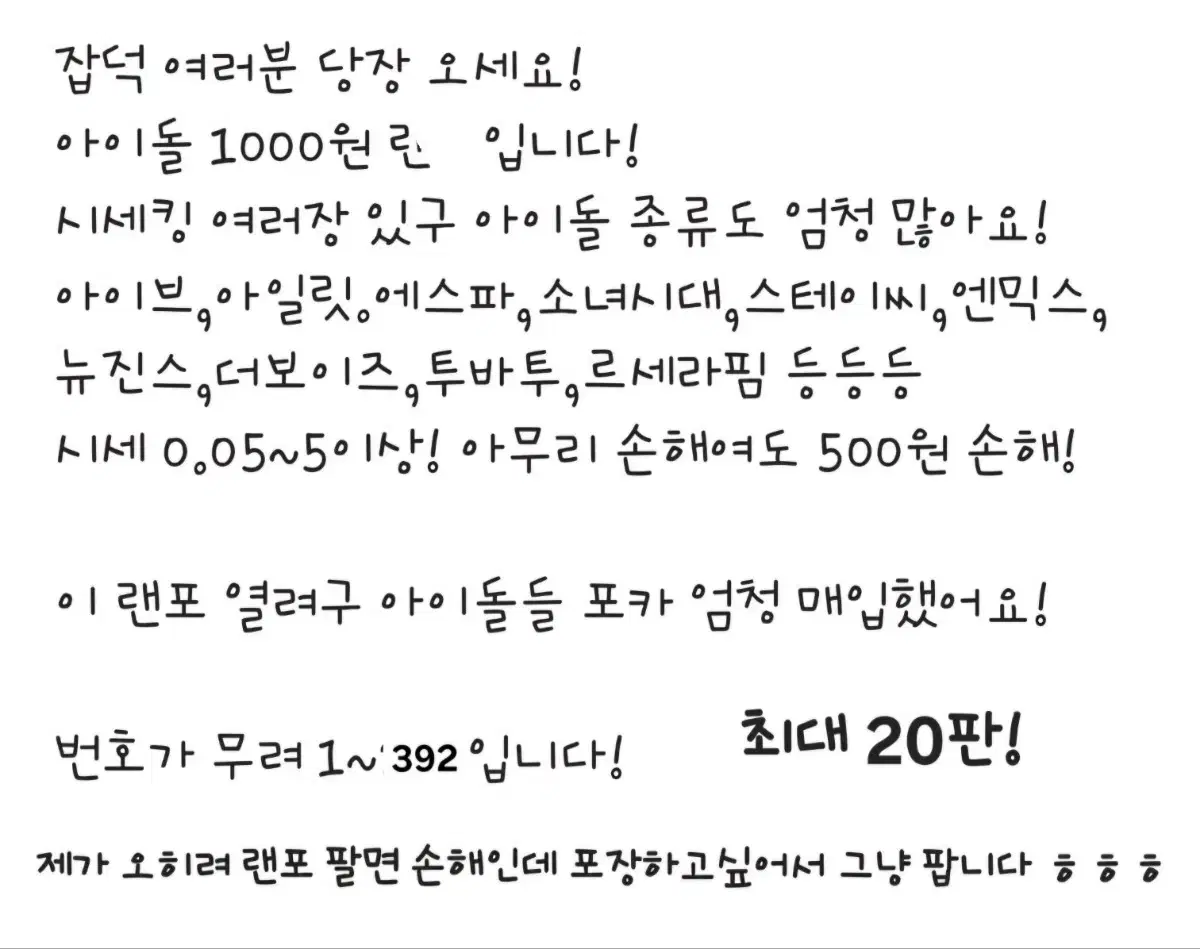 잡덕 여러분 당장 오세요!
아이돌 1000원 입니다!
시세킹 여러장 있구 아이돌 종류도 엄청 많아요!
아이브,아일릿.에스파,소녀시대,스테이씨,엔믹스,
뉴진스,더보이즈,투바투,르세라핌 등등등
시세 0.05~5이상! 아무리 손해여도 500원 손해!
이 랜포 열려구 아이돌들 포카 엄청 매입했어요!
번호가 무려 1~392입니다!
최대 20판!
제가 오히려 랜포 팔면 손해인데 포장하고싶어서 그냥 팝니다 ㅎㅎㅎ